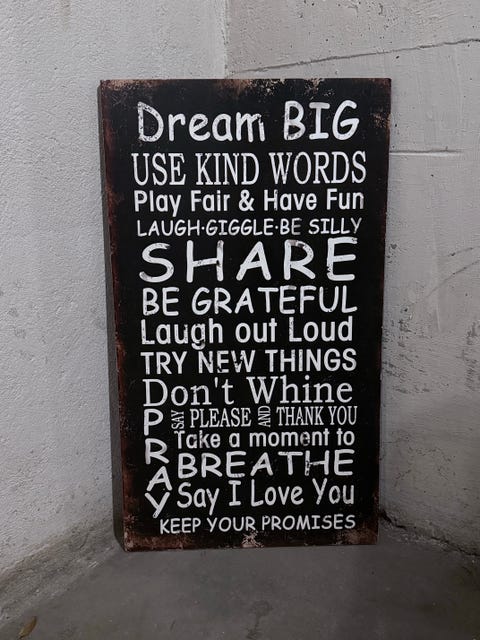 Dream BIG
USE KIND WORDS
Play Fair & Have Fun
LAUGH·GIGGLE·BE SILLY
SHARE
BE GRATEFUL
Laugh out Loud
TRY NEW THINGS
Don't Whine
PRAY
SAY PLEASE AND THANK YOU
Take a moment to
BREATHE
Say I Love You
KEEP YOUR PROMISES